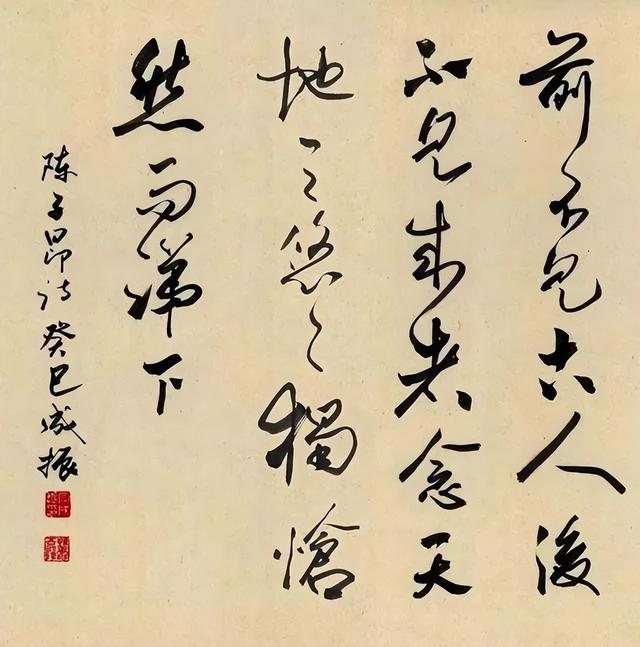 前不见古人後
不见来者念天
地之悠々獨愴
然而涕下
陈子昂诗癸巳成振